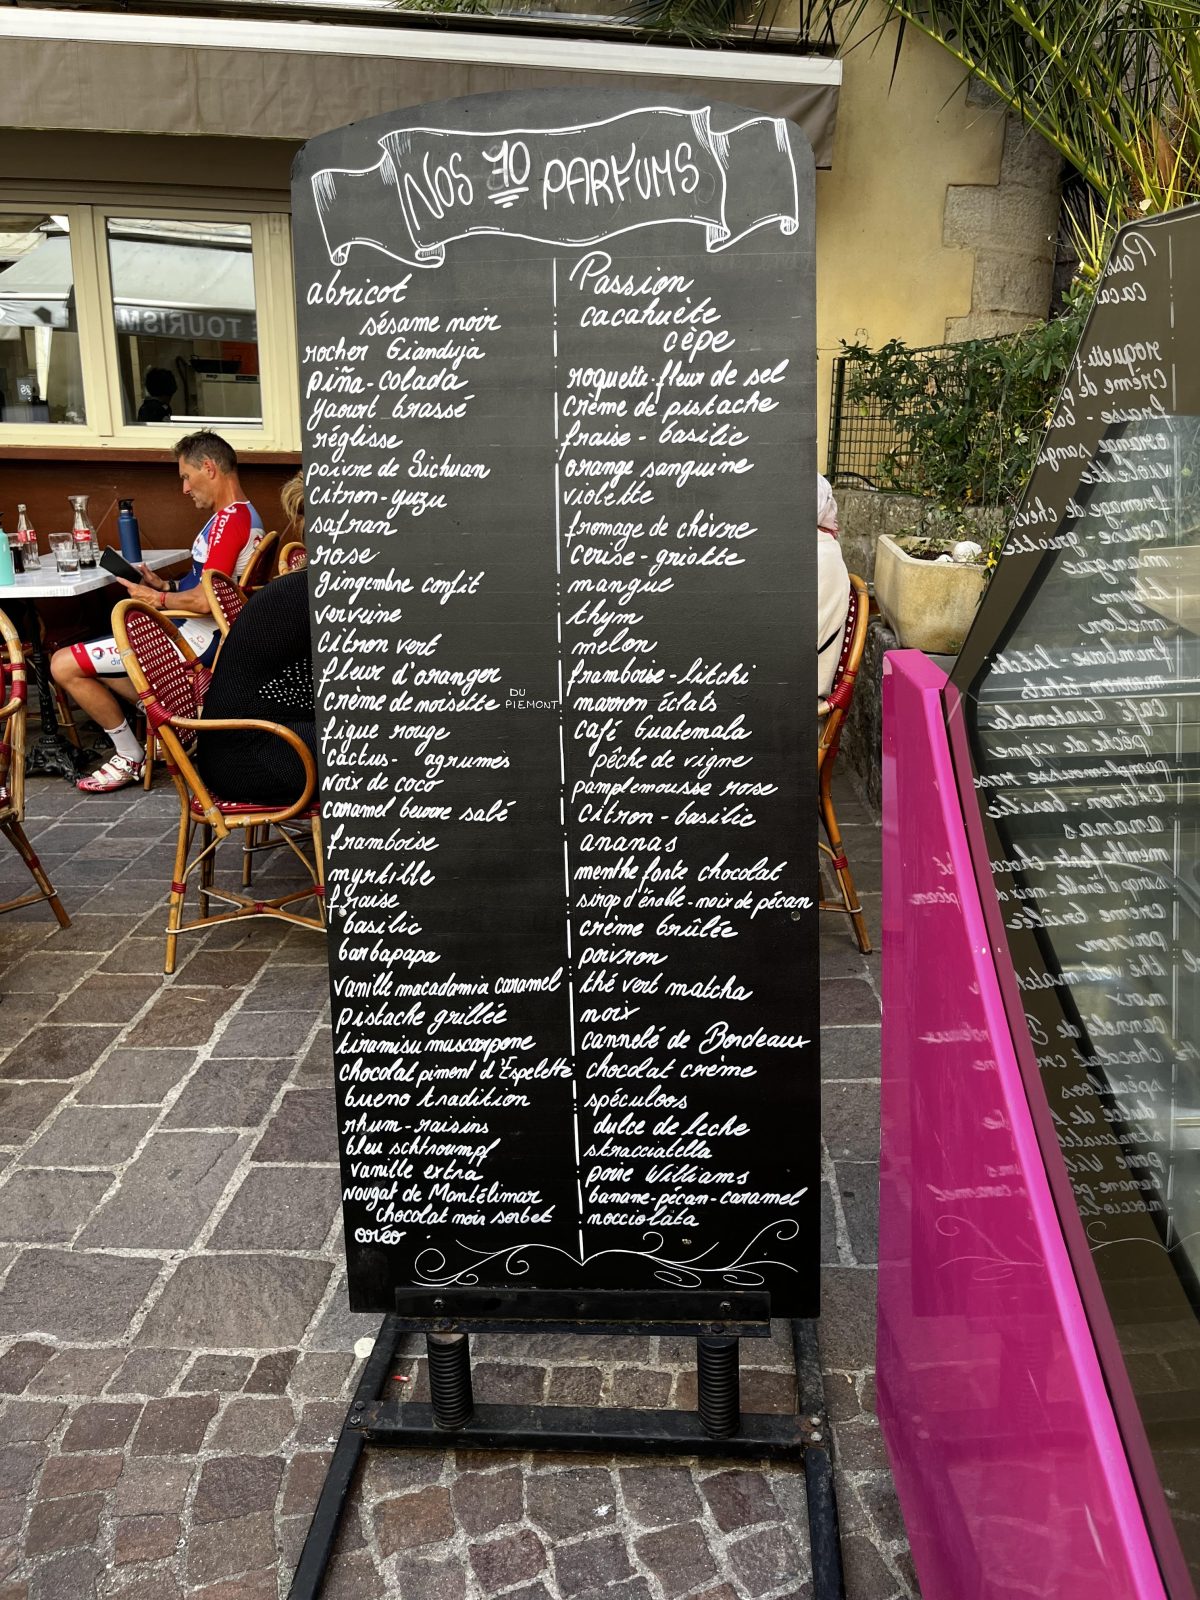 NOS 70 PARFUMS
abricot
sésame noir
rocher Gianduja
piña-colada
yaourt brassé
réglisse
poivre de Sichuan
citron-yuzu
safran
rose
gingembre confit
verveine
citron vert
fleur d'oranger
crème de noisette DU PIEMONT
figue rouge
cactus- agrumes
noix de coco
caramel beurre salé
framboise
myrtille
fraise
basilic
barbapapa
vanille macadamia caramel
pistache grillée
tiramisu mascarpone
chocolat piment d'Espelette
bueno tradition
rhum-raisins
bleu schtroumpf
vanille extra
nougat de Montélimar
chocolat noir sorbet
oréo
Passion
cacahuète
cèpe
roquette-fleur de sel
crème de pistache
fraise - basilic
orange sanguine
violette
fromage de chèvre
cerise-griotte
mangue
thym
melon
framboise-litchi
marron éclats
café Guatemala
pêche de vigne
pamplemousse rose
citron-basilic
ananas
menthe forte chocolat
sirop d'érable-noix de pécan
crème brûlée
poivron
thé vert matcha
noix
cannelé de Bordeaux
chocolat crème
spéculoos
dulce de leche
stracciatella
poire Williams
banane-pécan-caramel
nocciolata
TOURISM
TOTAL